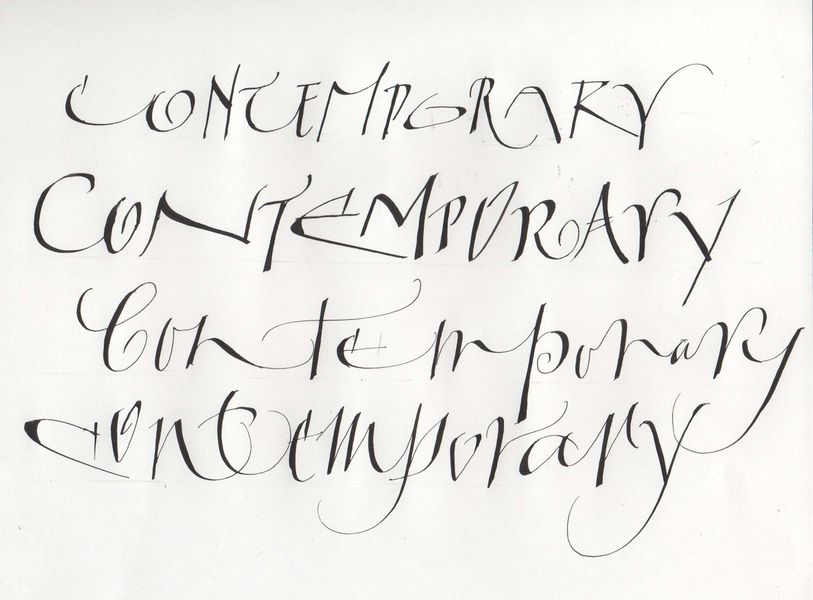 CONTEMPORARY
CONTEMPORARY
Contemporary
Contemporary